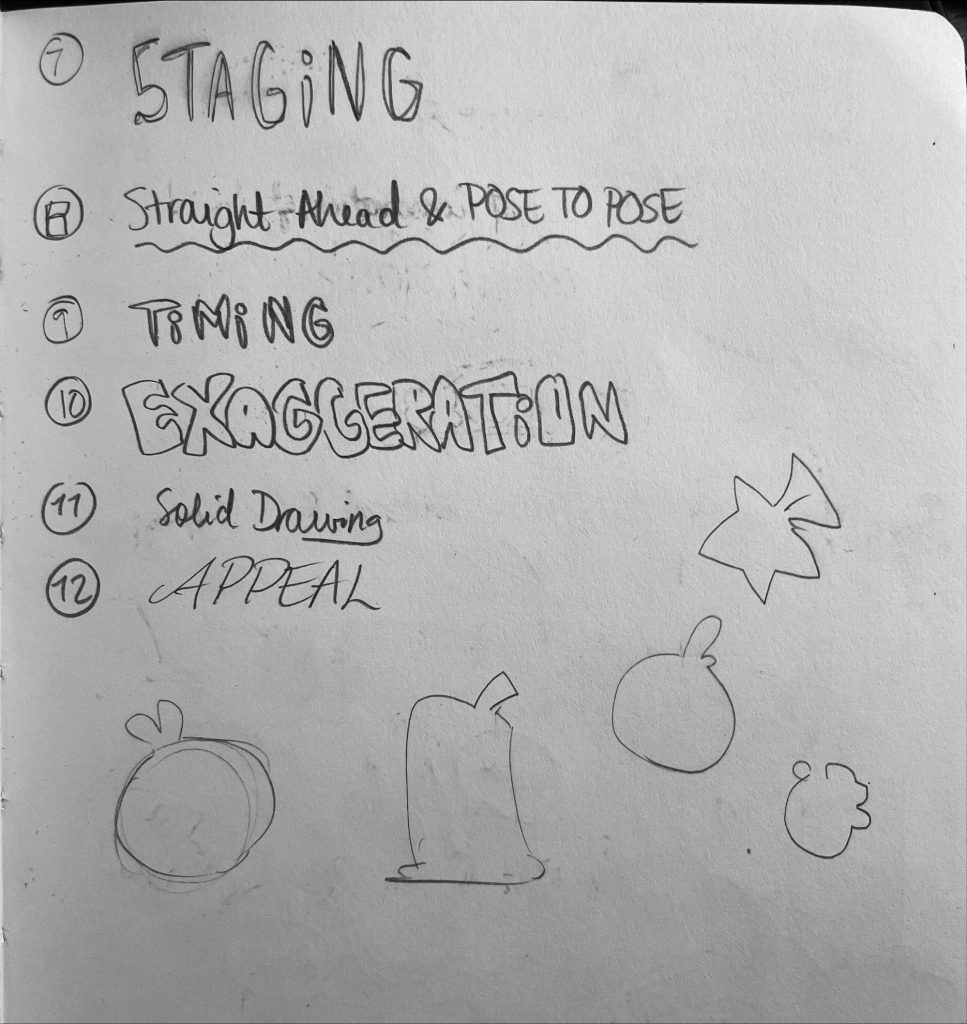 7 STAGiNG
8 Straight-Ahead & POSE TO POSE
9 TiMiNG
10 EXAGGERATiON
11 Solid Drawing
12 APPEAL